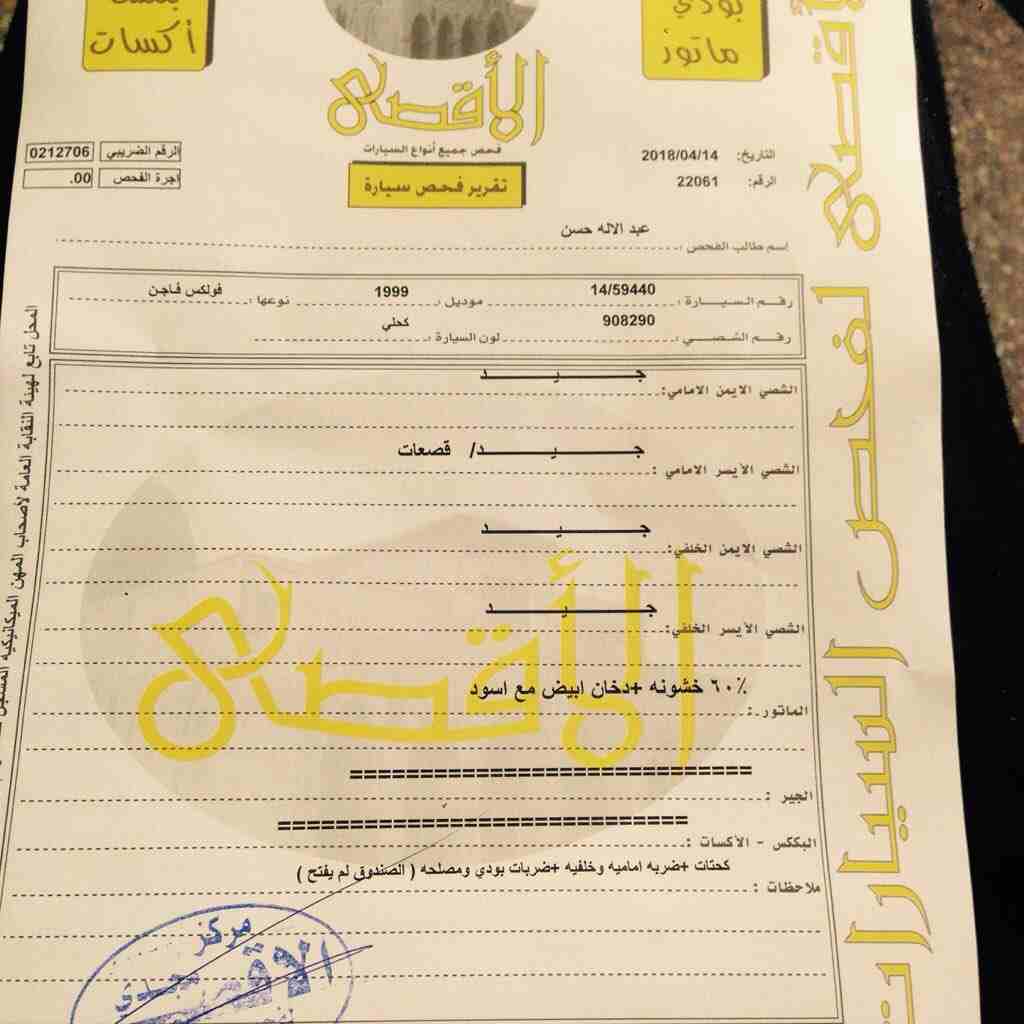 بودي
ماتور
أكسات
الأقصى
فحص جميع أنواع السيارات
تقرير فحص سيارة
التاريخ: 2018/04/14
الرقم: 22061
الرقم الضريبي 0212706
اجرة الفحص 00.
إسم طالب الفحص : عبد الاله حسن
رقم السيارة : 14/59440 موديل : 1999 نوعها : فولكس فاجن
رقم الشصي : 908290 لون السيارة : كحلي
الشصي الايمن الامامي: جيد
الشصي الأيسر الامامي : جيد/ قصعات
الشصي الايمن الخلفي: جيد
الشصي الأيسر الخلفي: جيد
الماتور : ٦٠٪ خشونه +دخان ابيض مع اسود
الجير : ===========================
البكس - الأكسات : ===========================
ملاحظات : كحتات +ضربه اماميه وخلفيه +ضربات بودي ومصلحه ( الصندوق لم يفتح )
الأقصى
المحل تابع لهيئة النقابة العامة لأصحاب المهن الميكانيكيه
الأقصى لفحص السيارات
مركز
الاقصى